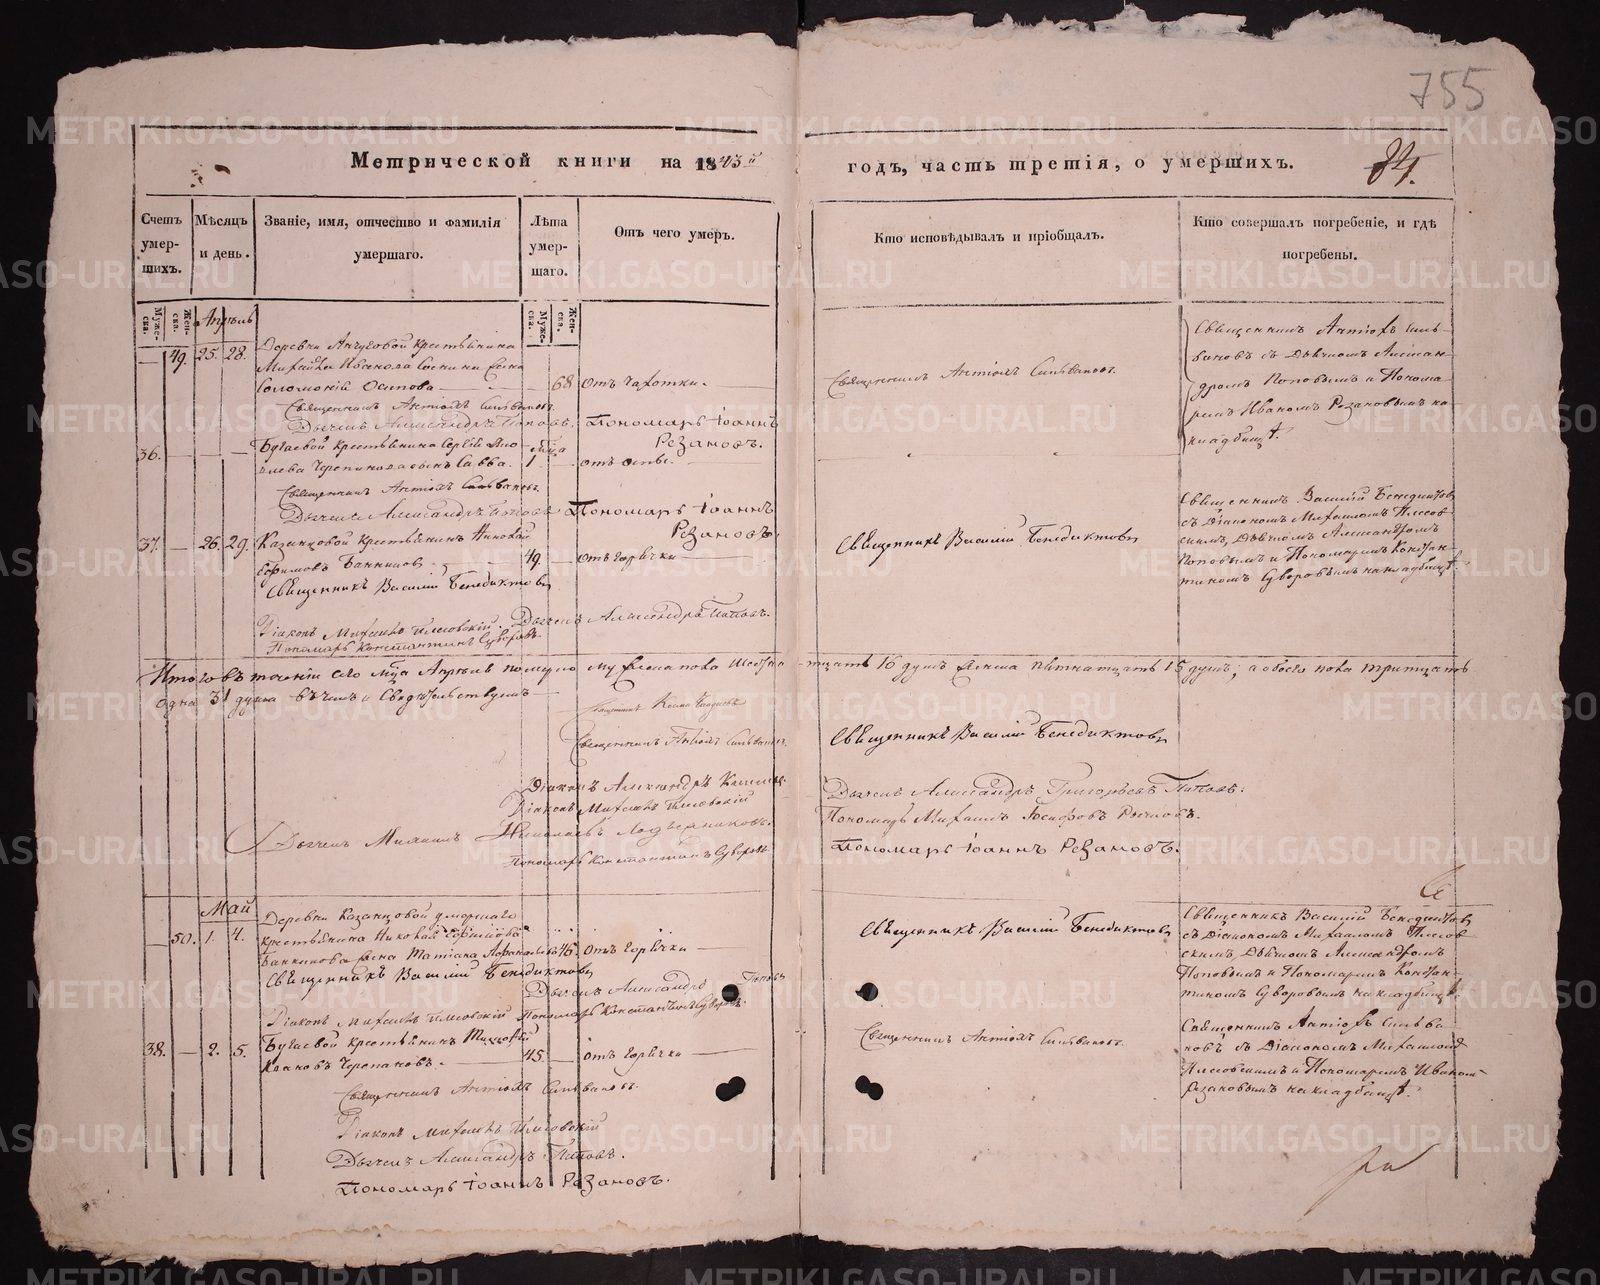 755
Метрической книги на 1843й годъ, часть третія, о умершихъ.
84.
Счетъ умер-шихъ.
Мѣсяцъ и день.
Званіе, имя, отчество и фамилія умершаго.
Лѣта умер-шаго.
Отъ чего умеръ.
Кто исповѣдывалъ и пріобщалъ.
Кто совершалъ погребеніе, и гдѣ погребены.
Муже-ска.
Жен-ска.
Муже-ска.
Жен-ска.
Апрѣль
49. 25. 28.
Деревни крестьянина
Соломонія Осипова
68 отъ чахотки.
Священникъ Антіохъ Сильвановъ.
Дьячекъ Александръ Поповъ. Пономарь Іоаннъ
Резановъ.
Священникъ Антіохъ Сильвановъ.
Священникъ Антіохъ Силь-
вановъ съ Дьячкомъ Алексан-
дромъ Поповымъ и Понома-
ремъ Иваномъ Резановымъ на
кладбищѣ.
36.
Бугаевой крестьянина Сергія
сынъ Савва. 1
отъ оспы.
Священникъ Антіохъ Сильвановъ.
Дьячекъ Александръ Поповъ Пономарь Іоаннъ
Резановъ.
37. 26. 29.
Казанцовой крестьянинъ Николай
Ефимовъ Банниковъ. 49. отъ горячки
Священникъ Василій Бенедиктовъ
Діаконъ Михаилъ Плесовскій. Дьячекъ Александръ Поповъ.
Пономарь Константинъ Суворовъ.
Священникъ Василій Бенедиктовъ
Священникъ Василій Бенедиктовъ
съ Діакономъ Михаиломъ Плесов-
скимъ, Дьячкомъ Александромъ
Поповымъ и Пономаремъ Констан-
тиномъ Суворовымъ на кладбищѣ.
Итого въ теченіи сего мца Апрѣля померло мужеска пола шестна-
тцать 16 душъ женска пятнатцать 15 душъ; а обоего пола тритцать
одна 31 душа въ чемъ и свидѣтельствуемъ
Священникъ
Священникъ Антіохъ Сильвановъ.
Священникъ Василій Бенедиктовъ
Діаконъ Александръ
Діаконъ Михаилъ Плесовскій
Дьячекъ Николаевъ
Пономарь Константинъ Суворовъ
Дьячекъ Александръ Григорьевъ Поповъ.
Пономарь Михаилъ Іосифовъ
Пономарь Іоаннъ Резановъ.
Май
50. 1. 4.
Деревни Казанцовой умершаго
крестьянина Николая Ефимова
Банникова жена Татіана 46. отъ горячки
Священникъ Василій Бенедиктовъ
Дьячекъ Александръ Поповъ
Діаконъ Михаилъ Плесовскій Пономарь Константинъ Суворовъ.
Священникъ Василій Бенедиктовъ
Священникъ Василій Бенедиктовъ
съ Діакономъ Михаиломъ Плесов-
скимъ, Дьячкомъ Александромъ
Поповымъ и Пономаремъ Констан-
тиномъ Суворовымъ на кладбищѣ.
38. 2. 5.
Бугаевой крестьянинъ Тимофей
Ивановъ Черепановъ. 45. отъ горячки
Священникъ Антіохъ Сильвановъ.
Діаконъ Михаилъ Плесовскій
Дьячекъ Александръ Поповъ.
Пономарь Іоаннъ Резановъ.
Священникъ Антіохъ Сильвановъ.
Священникъ Антіохъ Сильва-
новъ съ Діакономъ Михаиломъ
Плесовскимъ и Пономаремъ Иваномъ
Резановымъ на кладбищѣ.
METRIKI.GASO-URAL.RU